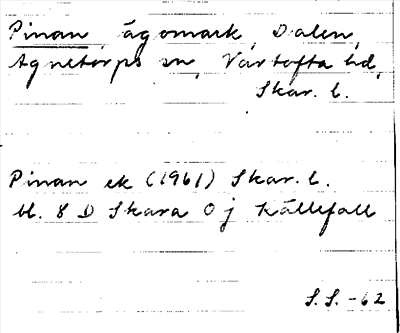 Pinan, ägomark, Dalen,
Agnetorps sn, Vartofta hd,
Skar. l.
Pinan ek (1961) Skar. l.
bl. 8 D Skara 0 j Källefall
S.S. -62